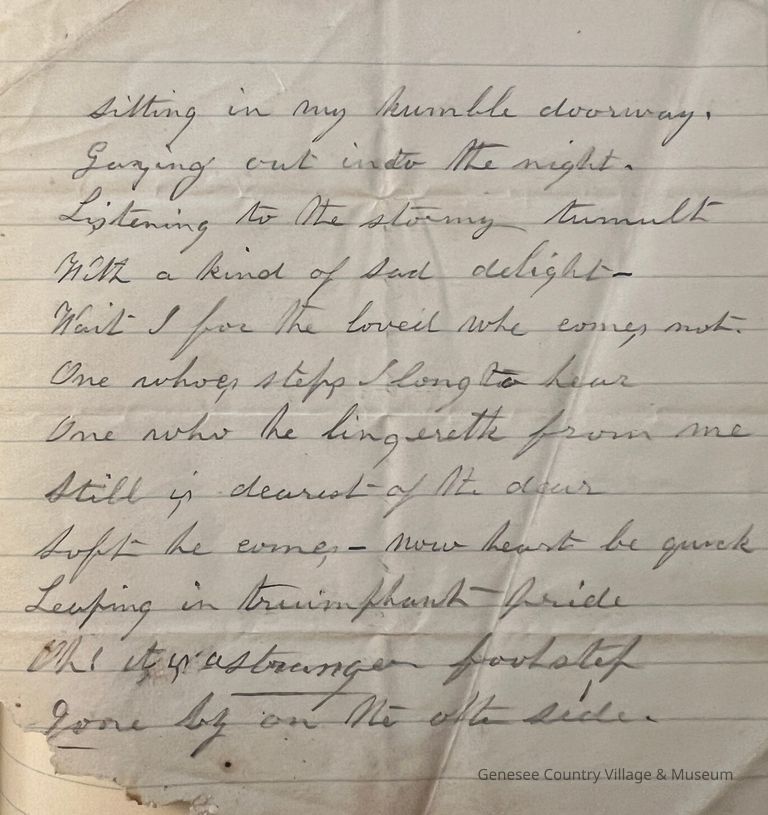 sitting in my humble doorway.
Gazing out into the night.
Listening to the stormy tumult
With a kind of sad delight—
Wait I for the loved who comes not.
One whoes steps I long to hear
One who he lingereth from me
Still is dearest of the dear
Soft he comes — now heart be quick
Leaping in triumphant pride
Oh! it is a stranger footstep
Gone by on the othe side.
Genesee Country Village & Museum